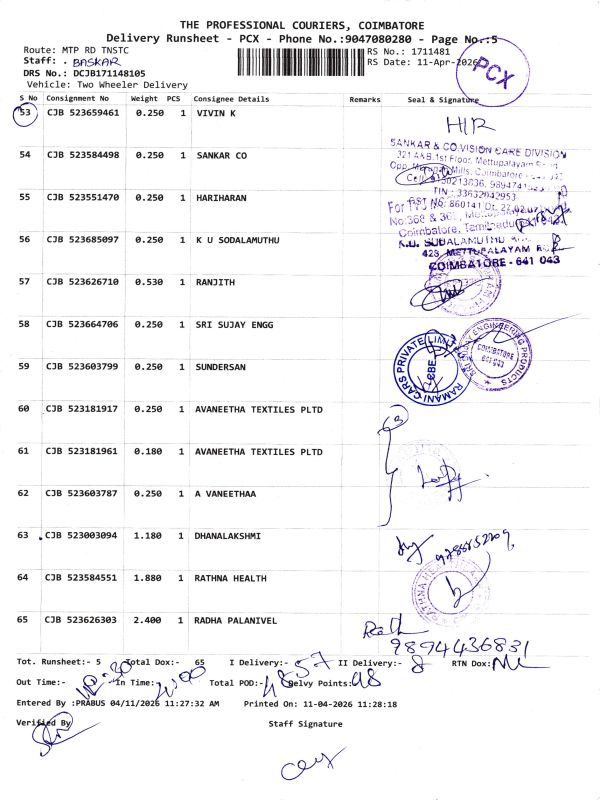 THE PROFESSIONAL COURIERS, COIMBATORE
Delivery Runsheet - PCX - Phone No.:9047080280 - Page No.:5
Route: MTP RD TNSTC
RS No.: 1711481
Staff: . BASKAR
RS Date: 11-Apr-2026
DRS No.: DCJB171148105
PCX
Vehicle: Two Wheeler Delivery
S No Consignment No Weight PCS Consignee Details Remarks Seal & Signature
53 CJB 523659461 0.250 1 VIVIN K
54 CJB 523584498 0.250 1 SANKAR CO
SANKAR & CO.VISION CARE DIVISION
321 A&B.1st Floor, Mettupalayam
55 CJB 523551470 0.250 1 HARIHARAN
Coimbatore, Tamilnadu
56 CJB 523685097 0.250 1 K U SODALAMUTHU
K.U. SUDALAMUTHU
423, METTUPALAYAM
COIMBATORE - 641 043
57 CJB 523626710 0.530 1 RANJITH
58 CJB 523664706 0.250 1 SRI SUJAY ENGG
ENGINEERING PRODUCTS
COIMBATORE
59 CJB 523603799 0.250 1 SUNDERSAN
RAMANI CARS PRIVATE LIMITED
CBE
60 CJB 523181917 0.250 1 AVANEETHA TEXTILES PLTD
61 CJB 523181961 0.180 1 AVANEETHA TEXTILES PLTD
62 CJB 523603787 0.250 1 A VANEETHAA
63 CJB 523003094 1.180 1 DHANALAKSHMI
64 CJB 523584551 1.880 1 RATHNA HEALTH
65 CJB 523626303 2.400 1 RADHA PALANIVEL
9894436831
Tot. Runsheet:- 5 Total Dox:- 65 I Delivery:- 57 II Delivery:- 8 RTN Dox:
Out Time:- In Time:- Total POD:- 48 Delvy Points: 48
Entered By :PRABUS 04/11/2026 11:27:32 AM Printed On: 11-04-2026 11:28:18
Verified By Staff Signature